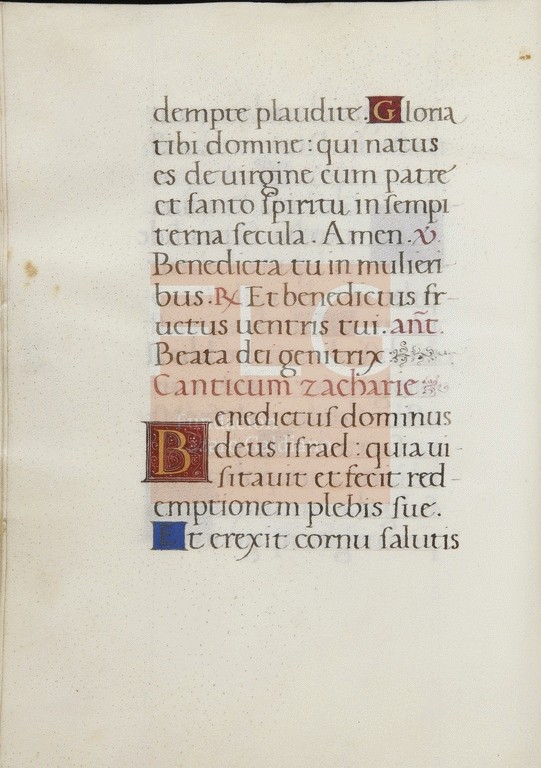 dempte plaudite. Gloria
tibi domine: qui natus
es de uirgine cum patre
et santo spiritu in sempi-
terna secula. Amen. ℣
Benedicta tu in mulieri
bus. ℞ Et benedictus fr-
uctus uentris tui. añt.
Beata dei genitrix
Canticum zacharie
Benedictus dominus
deus israel: quia ui-
sitauit et fecit red-
emptionem plebis sue.
Et erexit cornu salutis
FLG